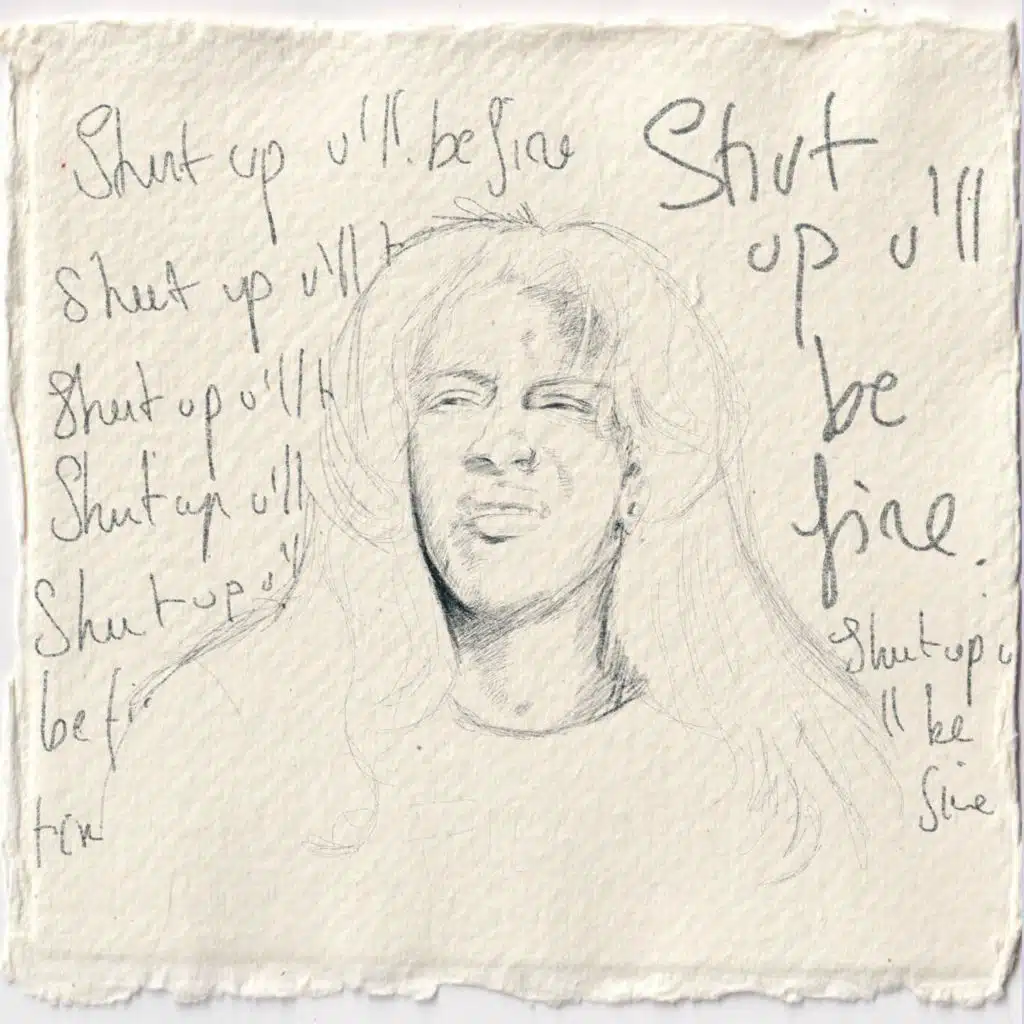 Shut up u'll be fine
Shut up u'll b
Shut up u'll b
Shut up u'll
Shut up u'll
be fi
Shut
up u'll
be
fine.
Shut up u
'll be
fine